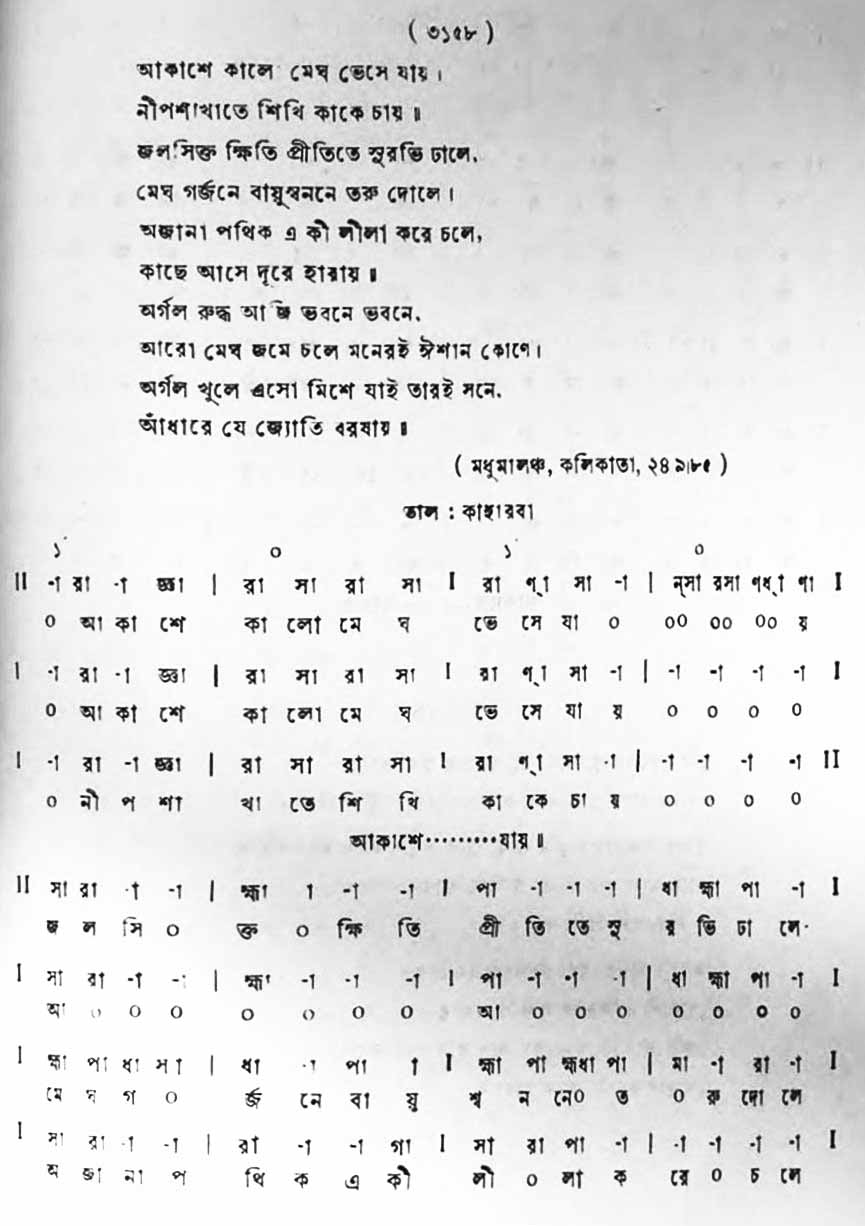 ( ৩১৫৮ )
আকাশে কালে মেঘ ভেসে যায় ।
নীপশাখাতে শিখি কাকে চায় ॥
জলসিক্ত ক্ষিতি প্রীতিতে সুরভি ঢালে,
মেঘ গর্জনে বায়ুস্বননে তরু দোলে ।
অজানা পথিক এ কী লীলা করে চলে,
কাছে আসে দূরে হারায় ॥
অর্গল রুদ্ধ আজি ভবনে ভবনে,
আরো মেঘ জমে চলে মনেরই ঈশান কোণে ।
অর্গল খুলে এসো মিশে যাই তারই সনে,
আঁধারে যে জ্যোতি বরষায় ॥
( মধুমালঞ্চ, কলিকাতা, ২৪।৯।৮৫ )
তাল : কাহারবা
১ ০ ১ ০
II -া রা -া জ্ঞা | রা সা রা সা I রা ণ্া সা -া | ন্সা রসা ণধ্া ণা I
০ আ কা শে কা লো মে ঘ ভে সে যা ০ ০০ ০০ ০০ য়
I -া রা -া জ্ঞা | রা সা রা সা I রা ণ্া সা -া | -া -া -া -া I
০ আ কা শে কা লো মে ঘ ভে সে যা য় ০ ০ ০ ০
I -া রা -া জ্ঞা | রা সা রা সা I রা ণ্া সা -া | -া -া -া -া II
০ নী প শা খা তে শি খি কা কে চা য় ০ ০ ০ ০
আকাশে·········যায় ॥
II সা রা -া -া | হ্মা া -া -া I পা -া -া -া | ধা হ্মা পা -া I
জ ল সি ০ ক্ত ০ ক্ষি তি প্রী তি তে সু র ভি ঢা লে·
I সা রা -া -া | হ্মা -া -া -া I পা -া -া -া | ধা হ্মা পা -া I
আ ০ ০ ০ ০ ০ ০ ০ আ ০ ০ ০ ০ ০ ০ ০
I হ্মা পা ধা সা | ধা -া পা া I হ্মা পা হ্মধা পা | মা -া রা -া I
মে ঘ গ ০ র্জ নে বা য়ু স্ব ন নে০ ত ০ রু দো লে
I সা রা -া -া | রা -া -া গা I সা রা পা -া | -া -া -া -া I
অ জা না প থি ক এ কী লী ০ লা ক রে ০ চ লে